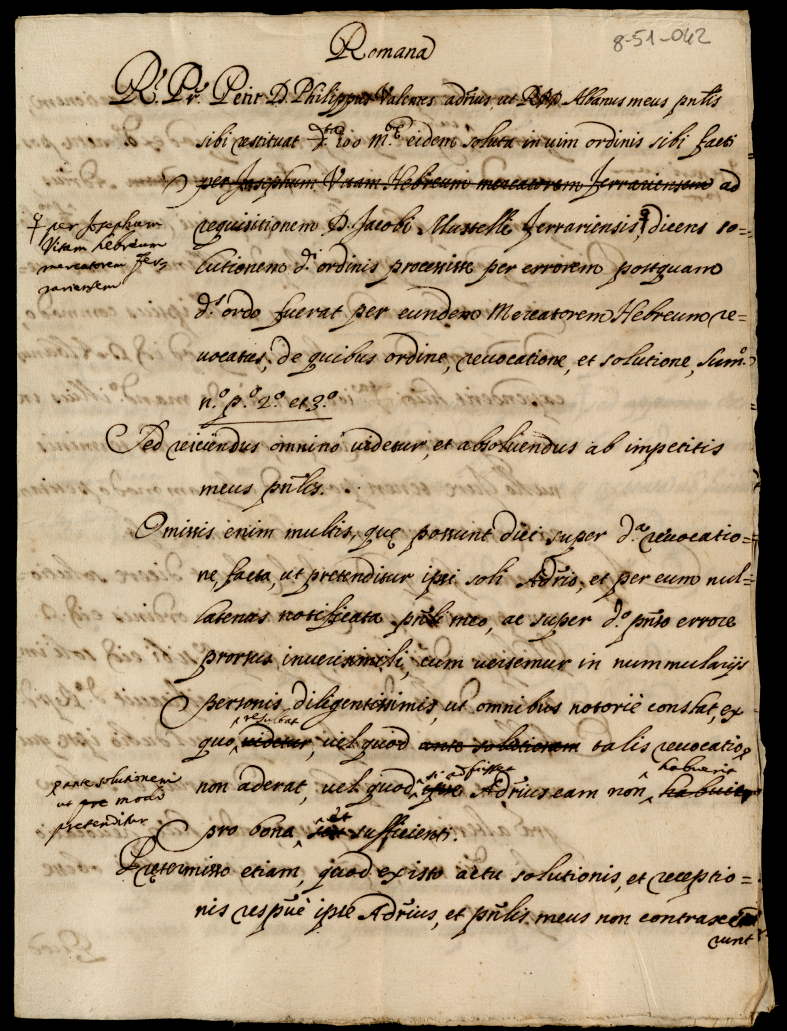 Romana
8-51-042
R.e P.r Petit D. Philippus Valentes adrius, ut RPD Albanus meus pñlis
sibi restituat 100 m.te eidem soluta in vim ordinis sibi facti
per Josephum Vitam Hebreum mercatorem Ferrariensem ad
requisitionem D. Jacobi Mastelli Ferrariensis, dicens so=
lutionem d.i ordinis processisse per errorem postquam
d.s ordo fuerat per eundem Mercatorem Hebreum re=
vocatus, de quibus ordine, revocatione, et solutione, Sum.o
n.o p.o 2.o et 3.o
Sed reiiciendus omninò videtur, et absolvendus ab impetitis
meus pñlis.
Omissis enim multis, quę possunt dici super d.a revocatio=
ne, facta, ut pretenditur ipsi soli Adrio, et per eum nul=
latenus notificata pñli meo, ac super d.o pñto errore
prorsus inverisimili, cum versemur in nummularijs
personis diligentissimis, ut omnibus notoriè constat, ex
resultat
quo, videtur, vel quod ante solutionem talis revocatio
si fuisset habuerit
non aderat, vel quod ipse Adrius eam non habuit
et
pro bona, seu sufficienti.
Prętermisso etiam, quod ex isto actu solutionis, et receptio=
nis respuè ipse Adrius, et pñlis meus non contraxe
runt
per Josephum
Vitam hebreum
mercatorem Fer=
rariensem
ante solutionem
ut pre modo
pretenditur